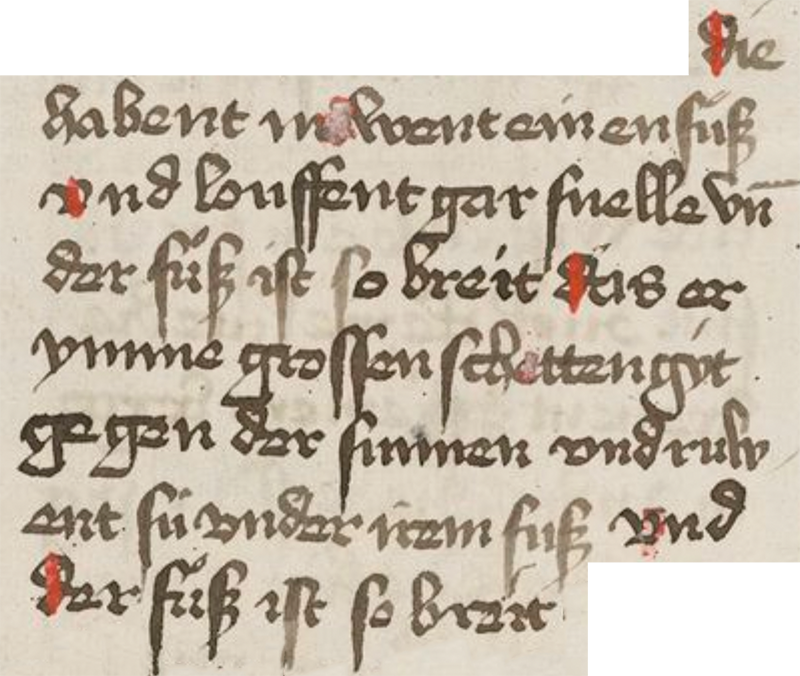 Die
habent nuwent einen fuͦß
vnd louffent gar snelle vn̄
der fuͦß ist so breit das er
ymme grossen schetten git
gegen der sunnen vnd ruw
ent sü vnder irem fuͦß vnd
der fuͦß ist so breit